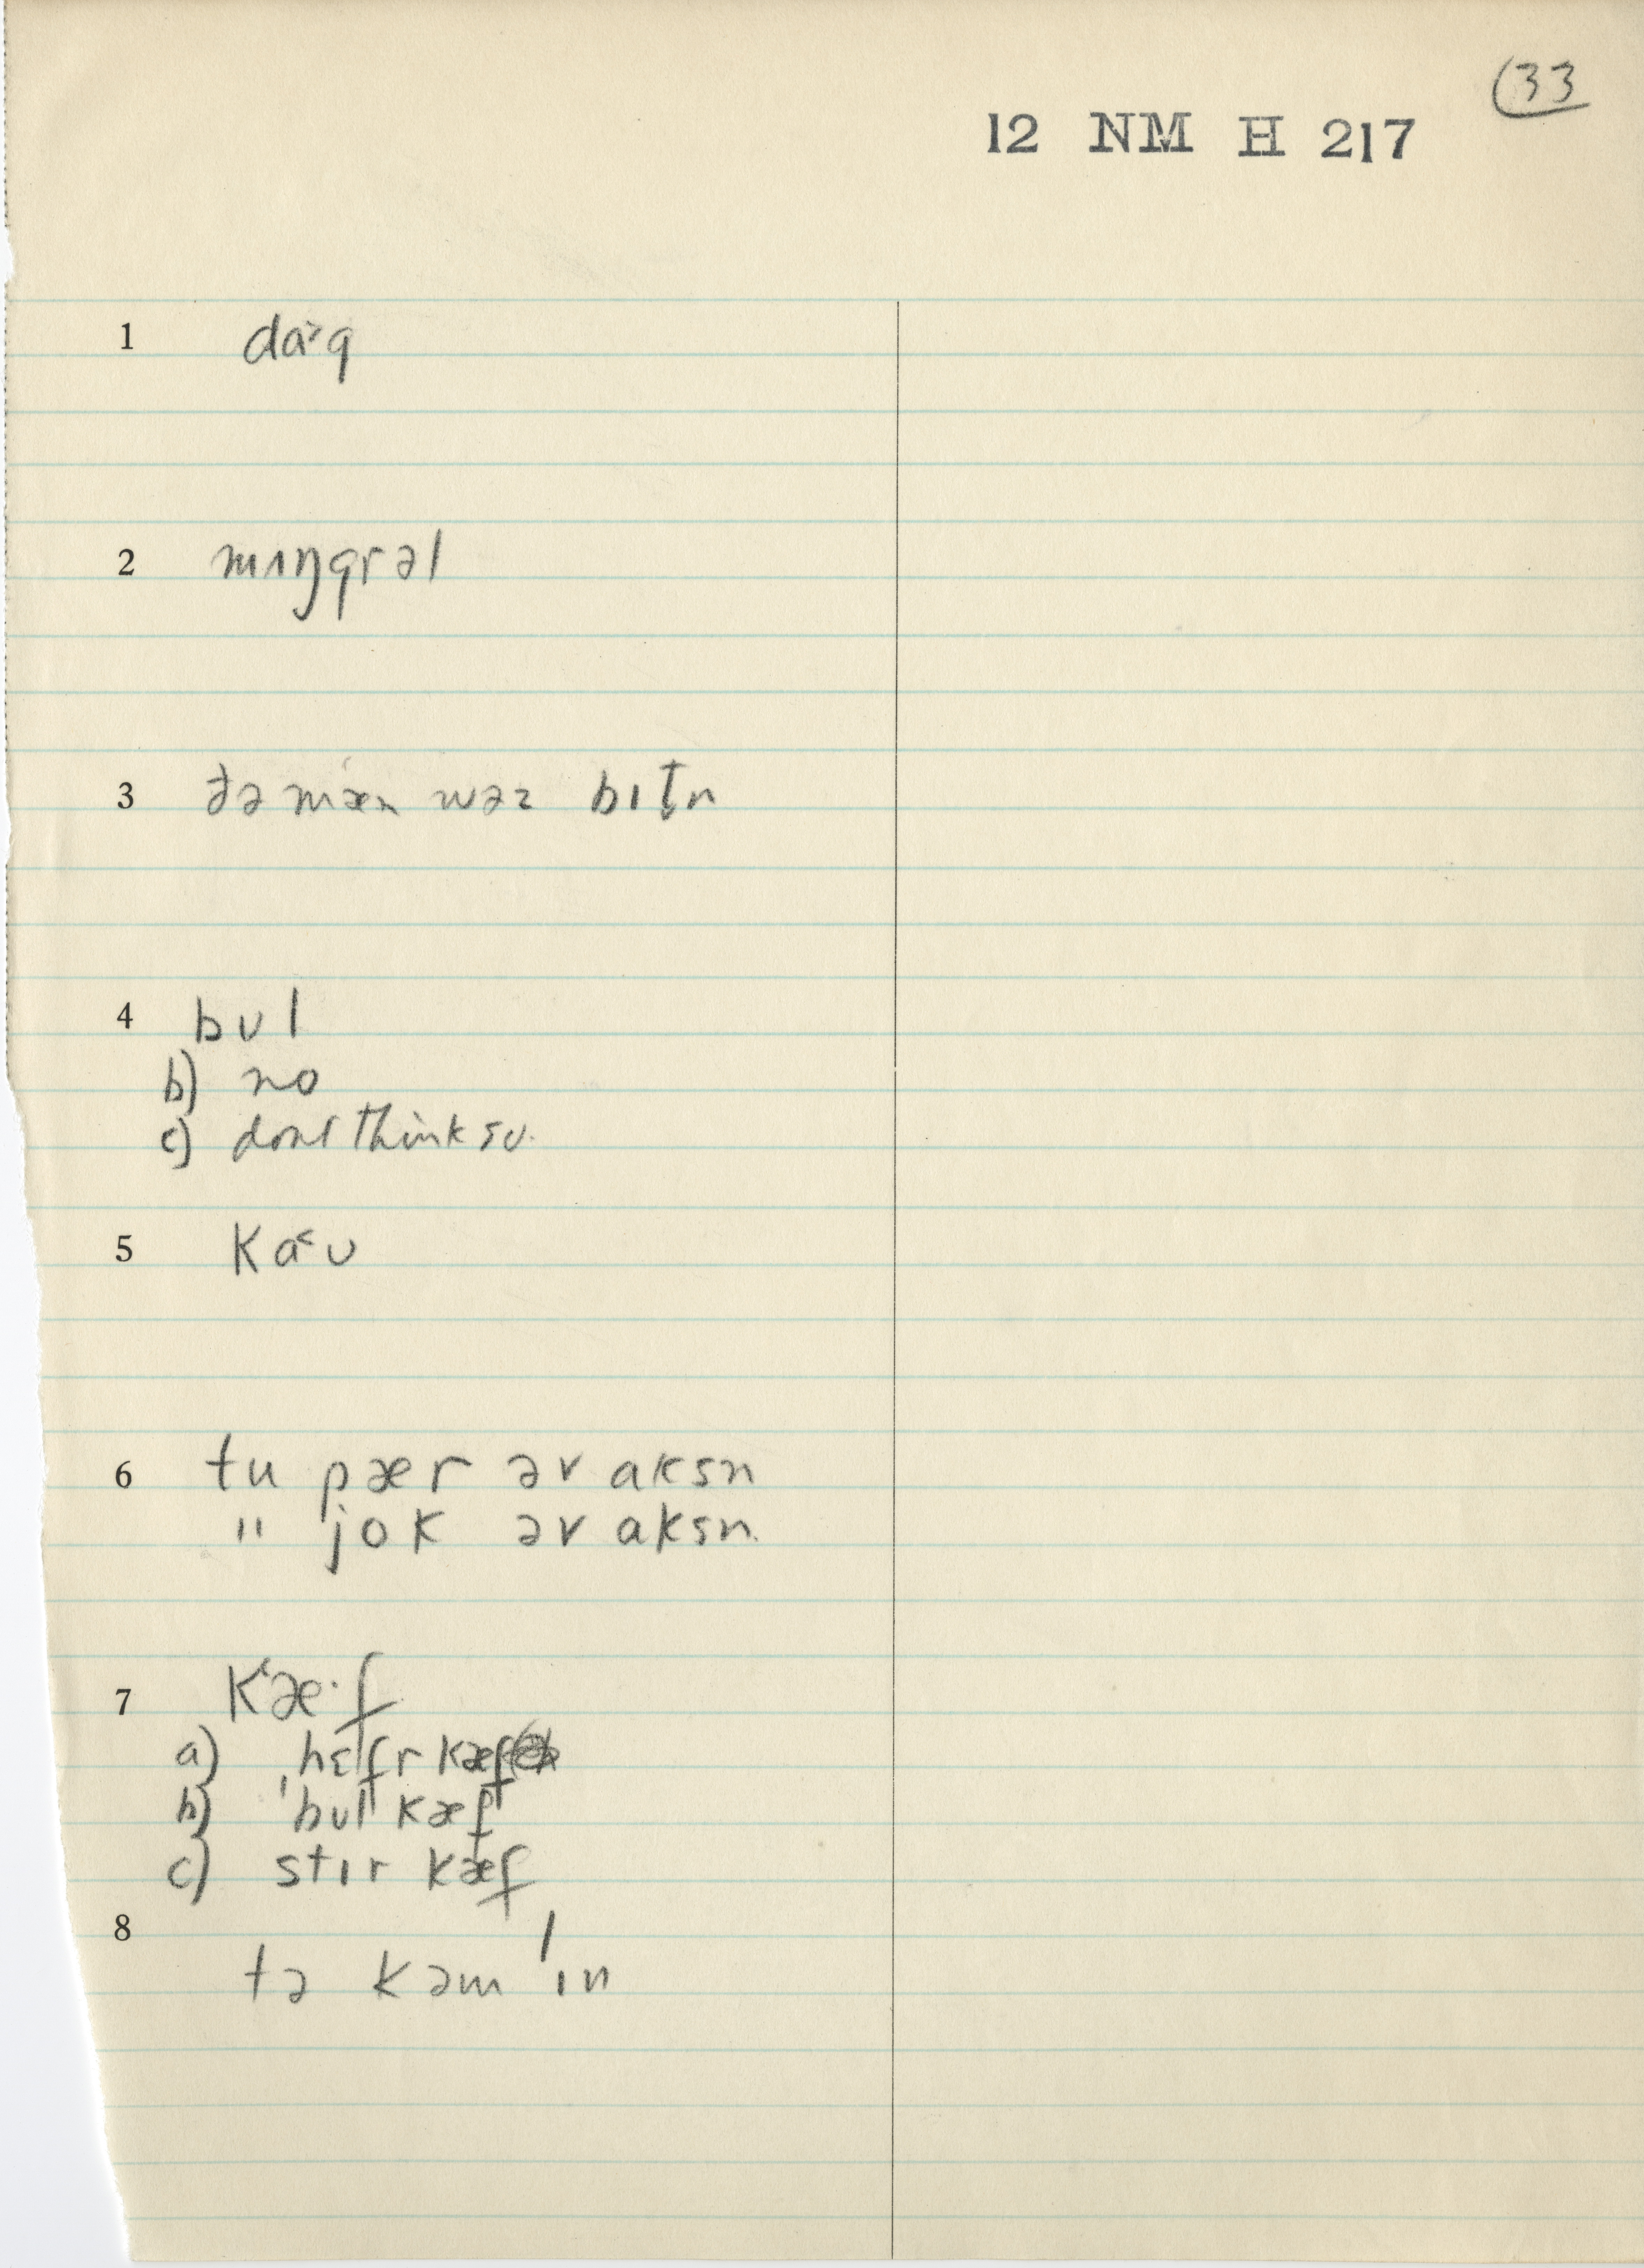 33
12 NM H 217
1 da˃g
2 mɪŋgrəl
3 ðə mæn wəz bɪt̬n
4 bʊl
b) no
c) dont think so.
5 ka˂ʊ
6 tu pær əv aksn
" jok əv aksn
7 k'æ·f
a) ˌhɛfr kæf
b) ˈbʊl kæf
c) stɪr kæf
8
tə kəm ˈɪn